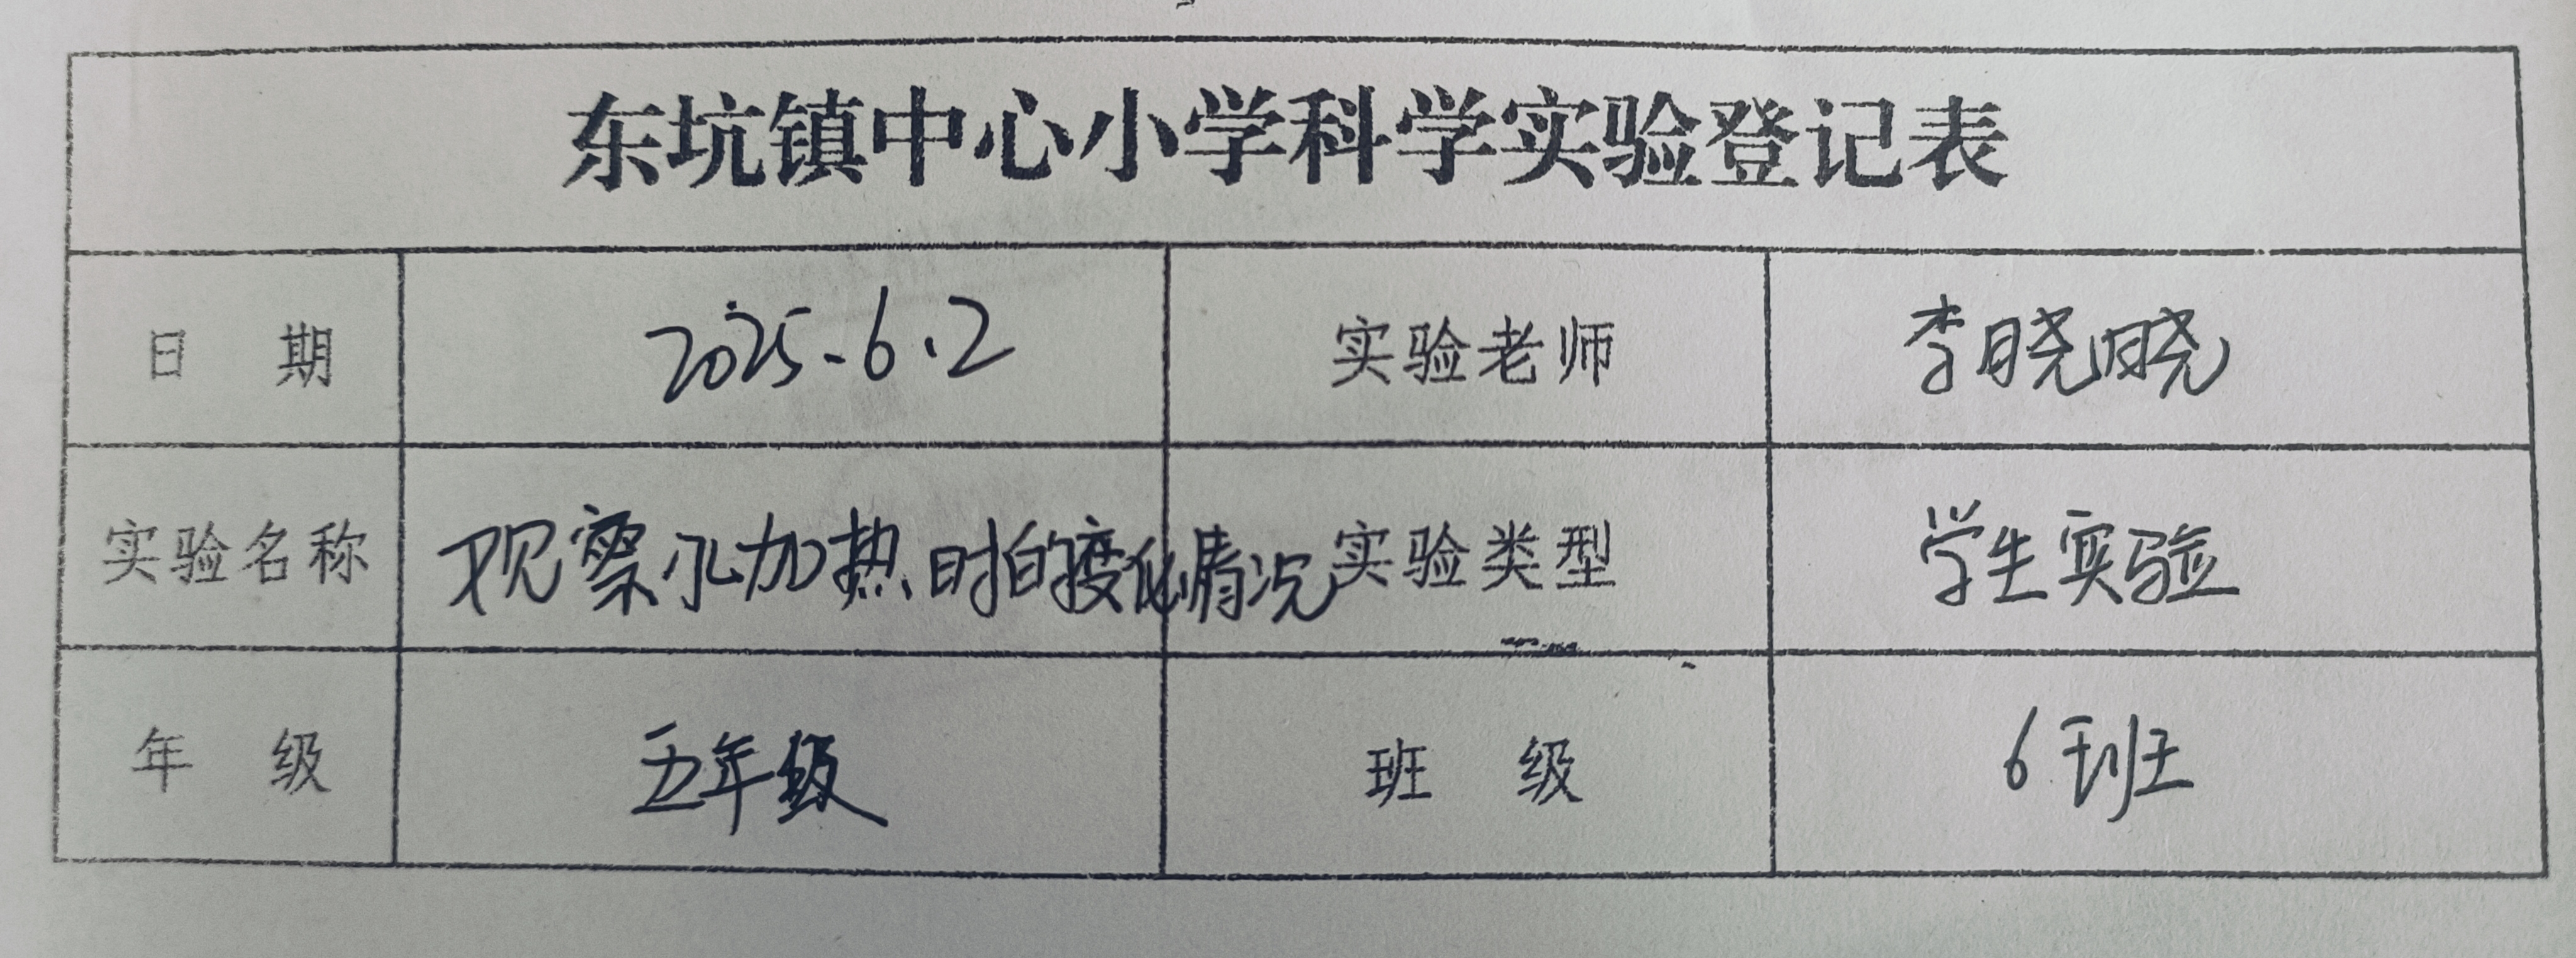 东坑镇中心小学科学实验登记表
日 期 2025.6.2 实验老师 李晓晓
实验名称 观察水加热时的变化情况 实验类型 学生实验
年 级 五年级 班 级 6班